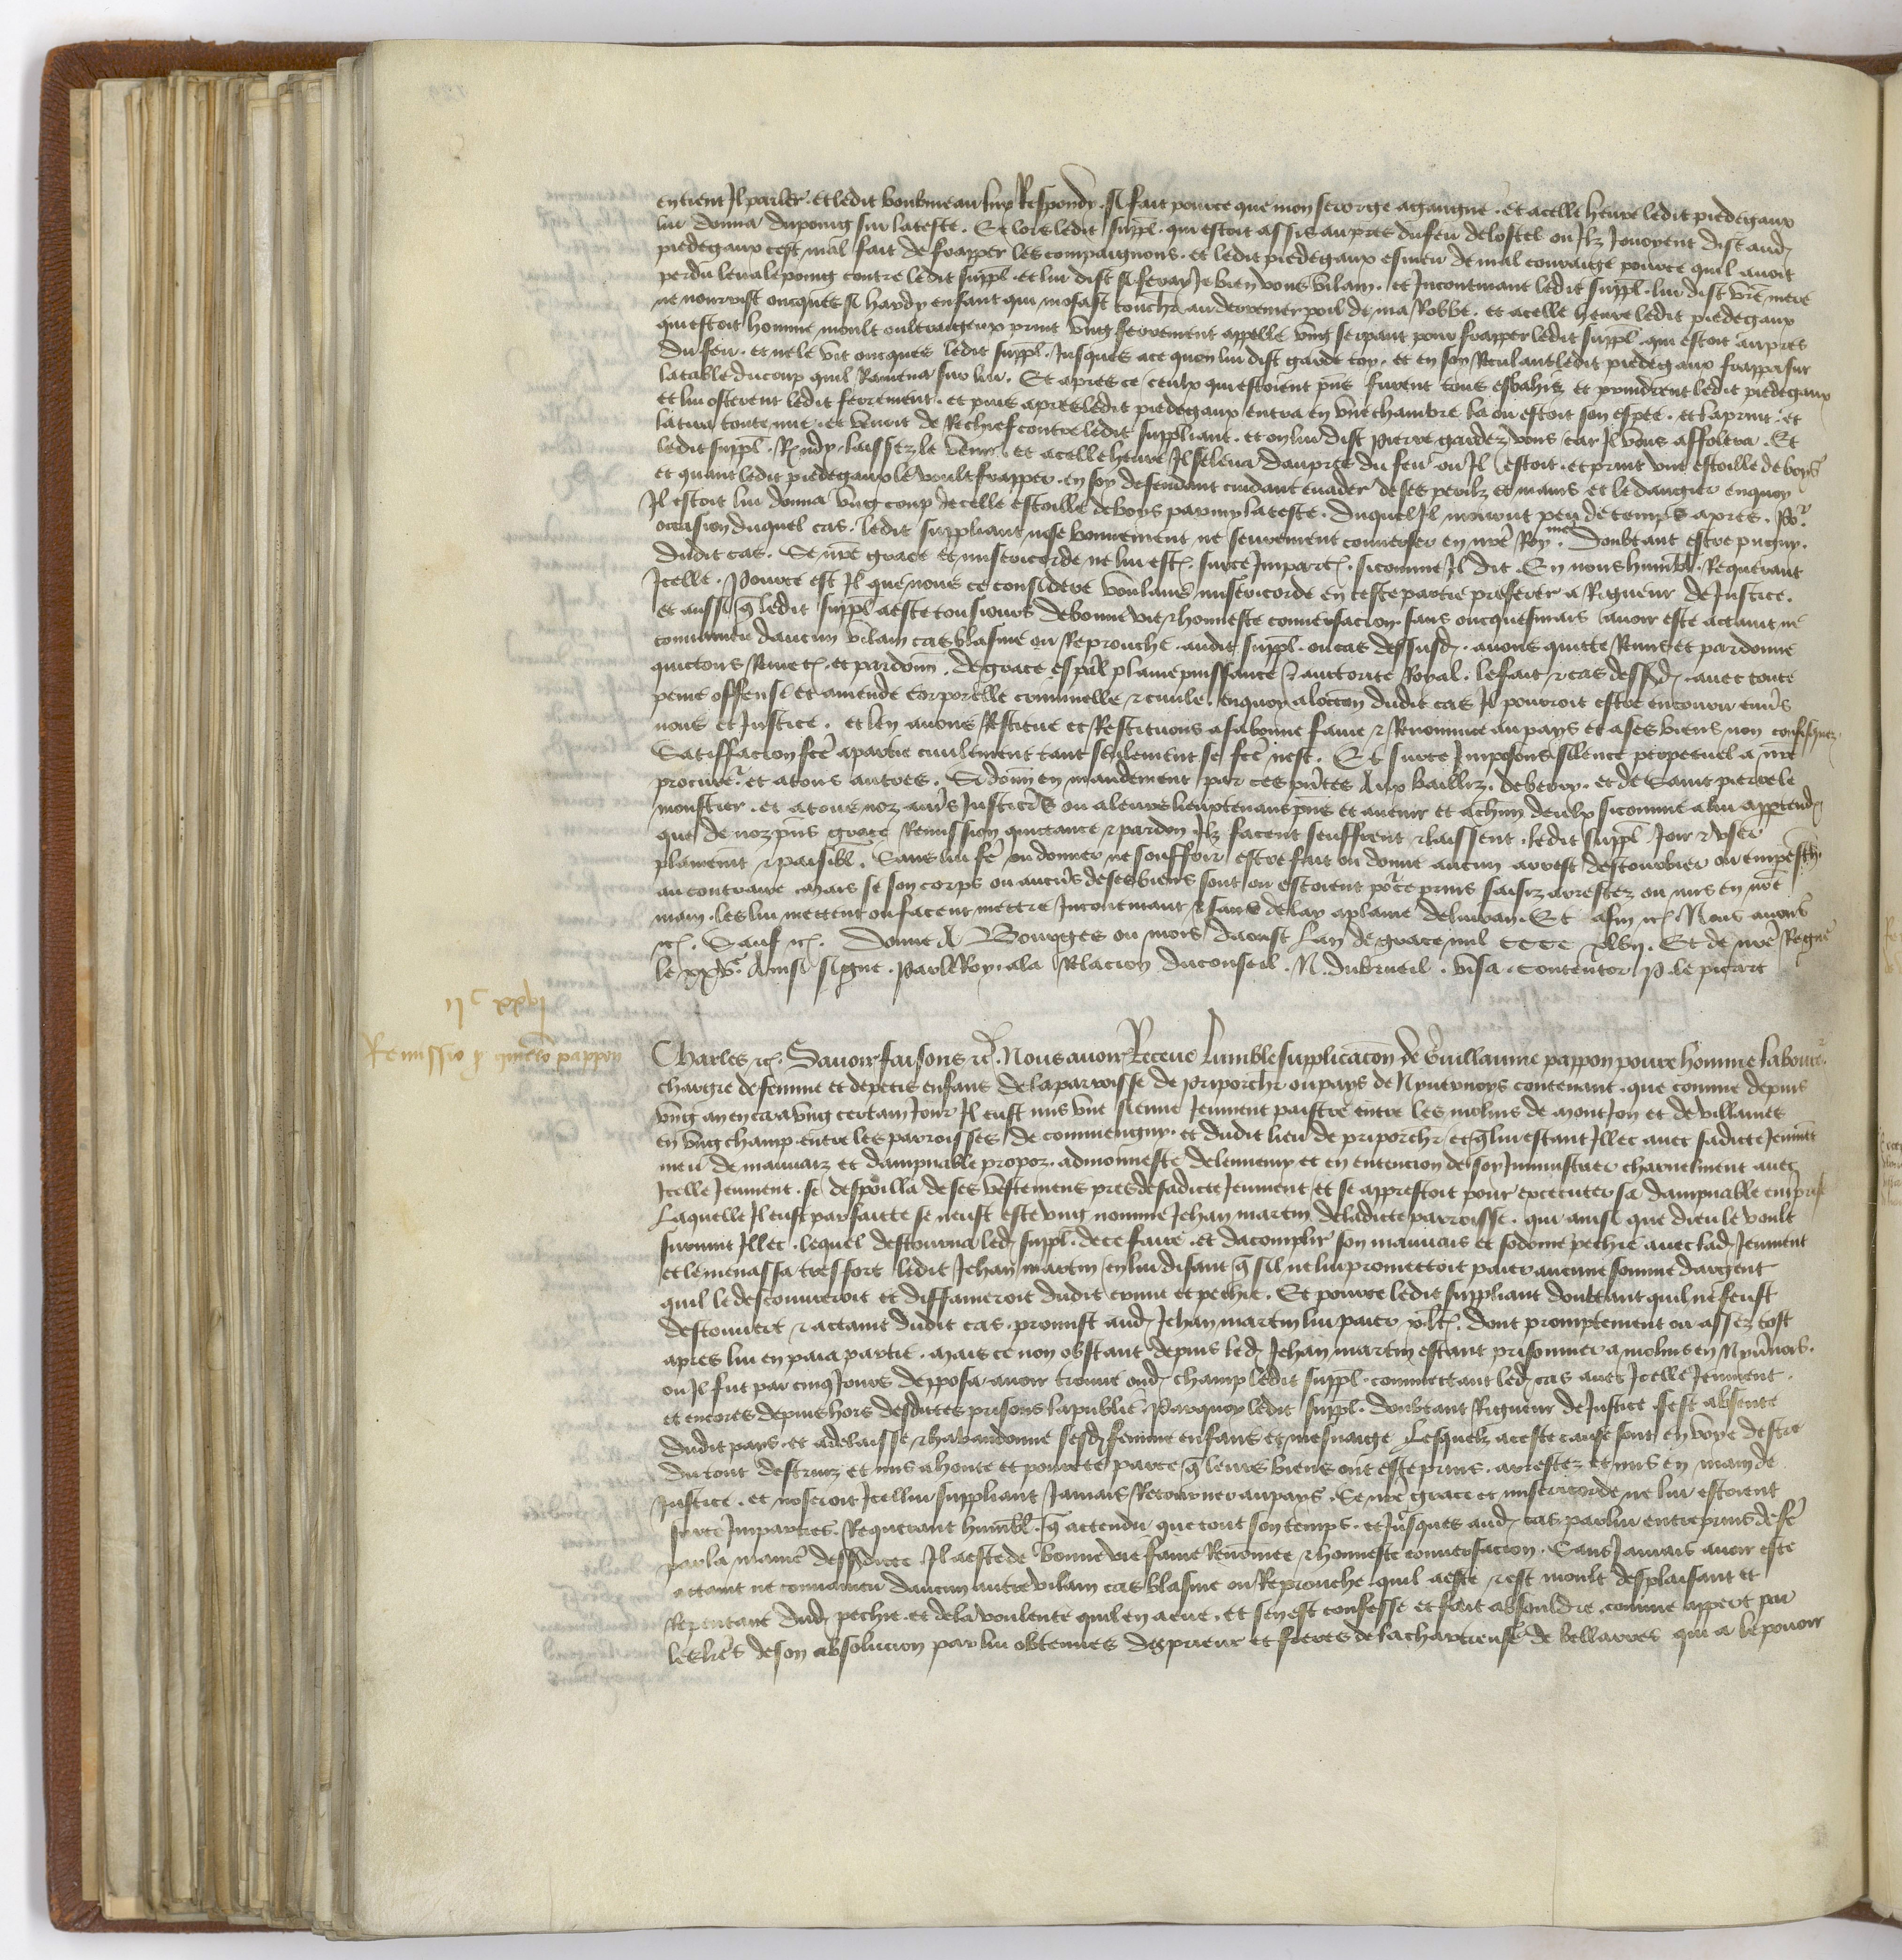 entient Il parler. et ledit bonbmeau luy Respondy. Il fait pource que mon serorge a gangne. et a celle heure ledit piedegaux
lui donna du poing sur la teste. Et lors ledit suppl. qui estoit assis aupres du feu de lostel ou Ilz Jouoyent dist aud.
piedegaux cest mal fait de frapper les compaignons. et ledit piedegaux esmeu de mal couraige pource quil auoit
perdu leua le poing contre ledit suppl. et lui dist si feray Je bien vous vilain. et Incontinant ledit suppl. lui dist vre mere
ne nourrist oncques si hardy enfant qui mosast toucher au derrenier poil de ma Robbe. et a celle heure ledit piedegaux
qui estoit homme moult oultraigeux print vng ferrement appelle vng serpant pour frapper ledit suppl. qui estoit aupres
du feu. et ne le vit oncques ledit suppl. Jusques a ce quon lui dist garde toy. et en soy Reculant ledit piedegaux frappa sur
la table du coup quil Ramena sur lui. Et apres ce ceulx qui estoient pns furent tous esbahiz et prindrent ledit piedegaux
et lui osterent ledit ferrement. et puis apres ledit piedegaux entra en vne chambre la ou estoit son espee. et la print. et
la tira toute nue. et venoit de Rechief contre ledit suppliant. et on lui dist pierre gardez vous car Il vous affolera. Et
ledit suppl. Rndy laissez le venir. et a celle heure Il se leua daupres du feu ou Il estoit. et print vne estoille de boys
et quant ledit piedegaux le voult frapper. en soy defendant cuidant euader de ses perilz et mains et le dangier enquoy
Il estoit lui donna vng coup dicelle estoille de boys parmy la teste. duquel Il mourut peu de temps apres. Por
occasion duquel cas. ledit suppliant nose bonnement ne seurement conuerser en nre Royme. doubtant estre pugny.
dudit cas. Se nre grace et misericorde ne lui est sur ce Impart. sicomme Il dit. En nous humbl. Requerant
Icelle. Pource est Il que nous ce considere voulans misericorde en ceste partie preferer a Rigueur de Justice.
et aussi que ledit suppl a este tousiours de bonne vie & honneste conuersacion. sans oncquesmais auoir este actaint ne
conuaincu daucun vilain cas blasme ou Reprouche. audit suppl. ou cas dessusd. auons quitte Remis et pardonne
quictons Remect. et pardonn. de grace espal plaine puissance & auctorite Royal. le fait & cas dessusd. auec toute
peine offense et amende corporelle criminelle & ciuile. enquoy a loccon dudit cas Il pourroit estre encouru enuers
nous et Justice. et len auons Restitue et Restituons a sa bonne fame & Renommee au pays et a ses biens non confisquez.
Satiffacion fce a partie ciuilement tant seulement se fce nest. Et sur ce Imposons silence perpetuel a nre
procureur. et a tous autres. Si donn en mandement par ces pntes Aux bailliz. de berry. et de Saint pierre le
monstier. et a tous noz aurs Justiciers ou a leurs lieuxtenans pns et auenir et a chun deulx sicomme a lui appartendra
que de noz pns grace Remission quictance & pardon Ilz facent seuffrent & laissent. ledit suppl. Joir & vser
plainemt & paisibl. Sans lui fe ou donner ne souffrir estre fait ou donne aucun arrest destourbier ou empeschmt
au contraire. Mais se son corps ou aucuns de ses biens sont ou estoient pour ce prins saisiz arrestez ou mis en nre
main. les lui mettent ou facent mettre Incontinant & sans delay a plaine deliurance. Et afin etc. Nous auons
etc. Sauf etc. Donne A Bourges ou mois daoust Lan de grace mil CCCC xlvij. Et de nre Regne
le xxve. Ainsi signe. Par le Roy. a la Relacion du conseil. N. dubrueil. visa. Contentor P. le picart
IIc xxvj
Remissio p guillermo pappon
Charles etc. Sauoir faisons etc. Nous auoir Receue lumble supplicacon de Guillaume pappon poure homme laboureur
chargie de femme et de petis enfans de la parroisse de priporchr ou pays de Nyuernoys contenant. que comme depuis
vng an en ca a vng certain Jour Il eust mis vne sienne Jeument paistre entre les molins de mont Jon et de villaines
en vng champ entre les parroisses de commengny. et dudit lieu de priporchr et que lui estant Illec auec sadicte Jeument
meu de mauuaiz et dampnable propoz. admonneste de lennemy et en entencion de soy Iministrer charnelment auec
Icelle Jeument. se despoilla de ses vestemens pres de sadicte Jeument et se apprestoit pour excecuter sa dampnable emprise
Laquelle Il eust parfaitte se neust este vng nomme Jehan martin de ladicte parroisse. qui ainsi que dieu le voult
suruint Illec. lequel destourna led. suppl. de ce faire. et dacomplir son mauuais et sodome pechie auec lad. Jeument
et le menassa tres fort ledit Jehan martin en lui disant que sil ne lui promettoit paier aucune somme dargent
quil le descouureroit et diffameroit dudit crime et pechie. Et pource ledit suppliant doubtant quil nen feust
descouuert & actaint dudit cas. promist aud. Jehan martin lui paier x lt. dont promptement ou assez tost
apres lui en paia partie. Mais ce non obstant depuis led. Jehan martin estant prisonnier a molins en Nyuernois.
ou Il fut par cinq Jours depposa auoir trouue oud. champ ledit suppl. commettant led. cas auec Icelle Jeument.
et encores depuis hors desdictes prisons la publie. Parquoy ledit suppl. doubtant Rigueur de Justice sest absente
dudit pays. et a delaisse & habandonne sesd. femme enfans et mesnaige. Lesquelz a ceste cause sont en voye destre
du tout destruiz et mis a honte et pourete parce que leurs biens ont este prins. arrestez et mis en main de
Justice. et noseroit Icellui suppliant Jamais Retourner au pays. Se nre grace et misericorde ne lui estoient
sur ce Imparties. Requerant humbl. que attendu que tout son temps. et Jusques aud. cas par lui entreprins de fe
par la maniere dessusdicte Il a este de bonne vie fame Renommee & honneste conuersacion. Sans Jamais auoir este
actaint ne conuaincu daucun autre vilain cas blasme ou Reprouche. quil a este & est moult desplaisant et
Repentant dud. pechie. et de la voulente quil en a eue. et sen est confesse et fait absouldre. comme appert par
les lres de son absolucion par lui obtenues des prieur et freres de la chartreuse de bellarres qui a le pouoir